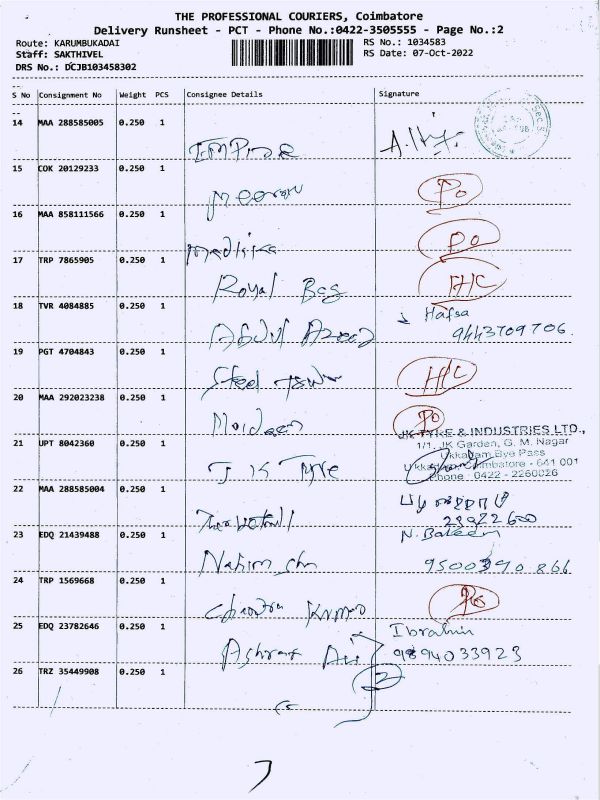 THE PROFESSIONAL COURIERS, Coimbatore
Delivery Runsheet - PCT - Phone No.:0422-3505555 - Page No.:2
Route: KARUMBUKADAI
RS No.: 1034583
Staff: SAKTHIVEL
RS Date: 07-Oct-2022
DRS No.: DCJB103458302
S No Consignment No Weight PCS Consignee Details Signature
14 MAA 288585005 0.250 1
EMPIRE
15 COK 20129233 0.250 1
Meeran PO
16 MAA 858111566 0.250 1
PO
17 TRP 7865905 0.250 1
Royal Bag
18 TVR 4084885 0.250 1
Abdul Azeez Hafsa
9443709706
19 PGT 4704843 0.250 1
Steel H/C
20 MAA 292023238 0.250 1
Moideen PO
21 UPT 8042360 0.250 1
JK TYRE & INDUSTRIES LTD.,
1/1, JK Garden, G. M. Nagar
Ukkadam Bye Pass
Coimbatore - 641 001
Phone : 0422 - 2260026
J K Tyre
22 MAA 288585004 0.250 1
23 EDQ 21439488 0.250 1
N.
9500390866
24 TRP 1569668 0.250 1
Chandra Kumar
25 EDQ 23782646 0.250 1
Ashraf Ali Ibrahim
9894033923
26 TRZ 35449908 0.250 1
2